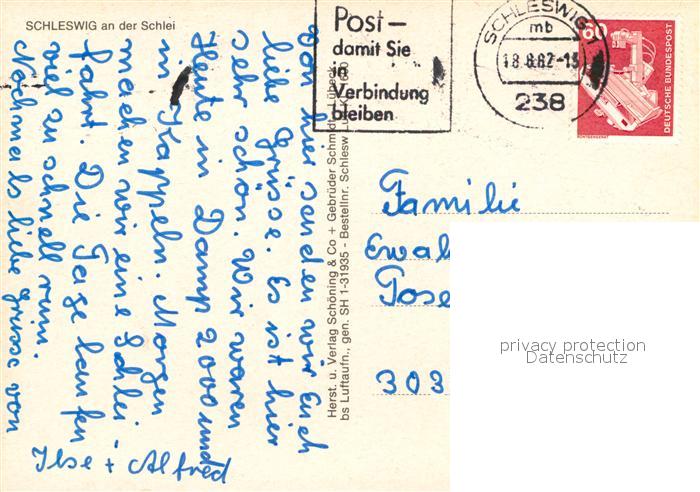 SCHLESWIG an der Schlei
Von hier senden wir Euch
liebe Grüsse. Es ist hier
sehr schön. Wir waren
Heute in Damp 2000 und
in Kappeln. Morgen
machen wir eine Schlei-
fahrt. Die Tage laufen
viel zu schnell rum.
Nochmals liebe Grüsse von
Ilse + Alfred
Herst. u. Verlag Schöning & Co + Gebrüder Schmidt, Lübeck
bs Luftaufn., gen. SH 1-31935 - Bestellnr. Schlesw Lu
Post –
damit Sie
in
Verbindung
bleiben
SCHLESWIG 1
mb
18.8.82-13
238
60
DEUTSCHE BUNDESPOST
RÖNTGENGERÄT
Familie
Ewal
Tose
303
privacy protection
Datenschutz